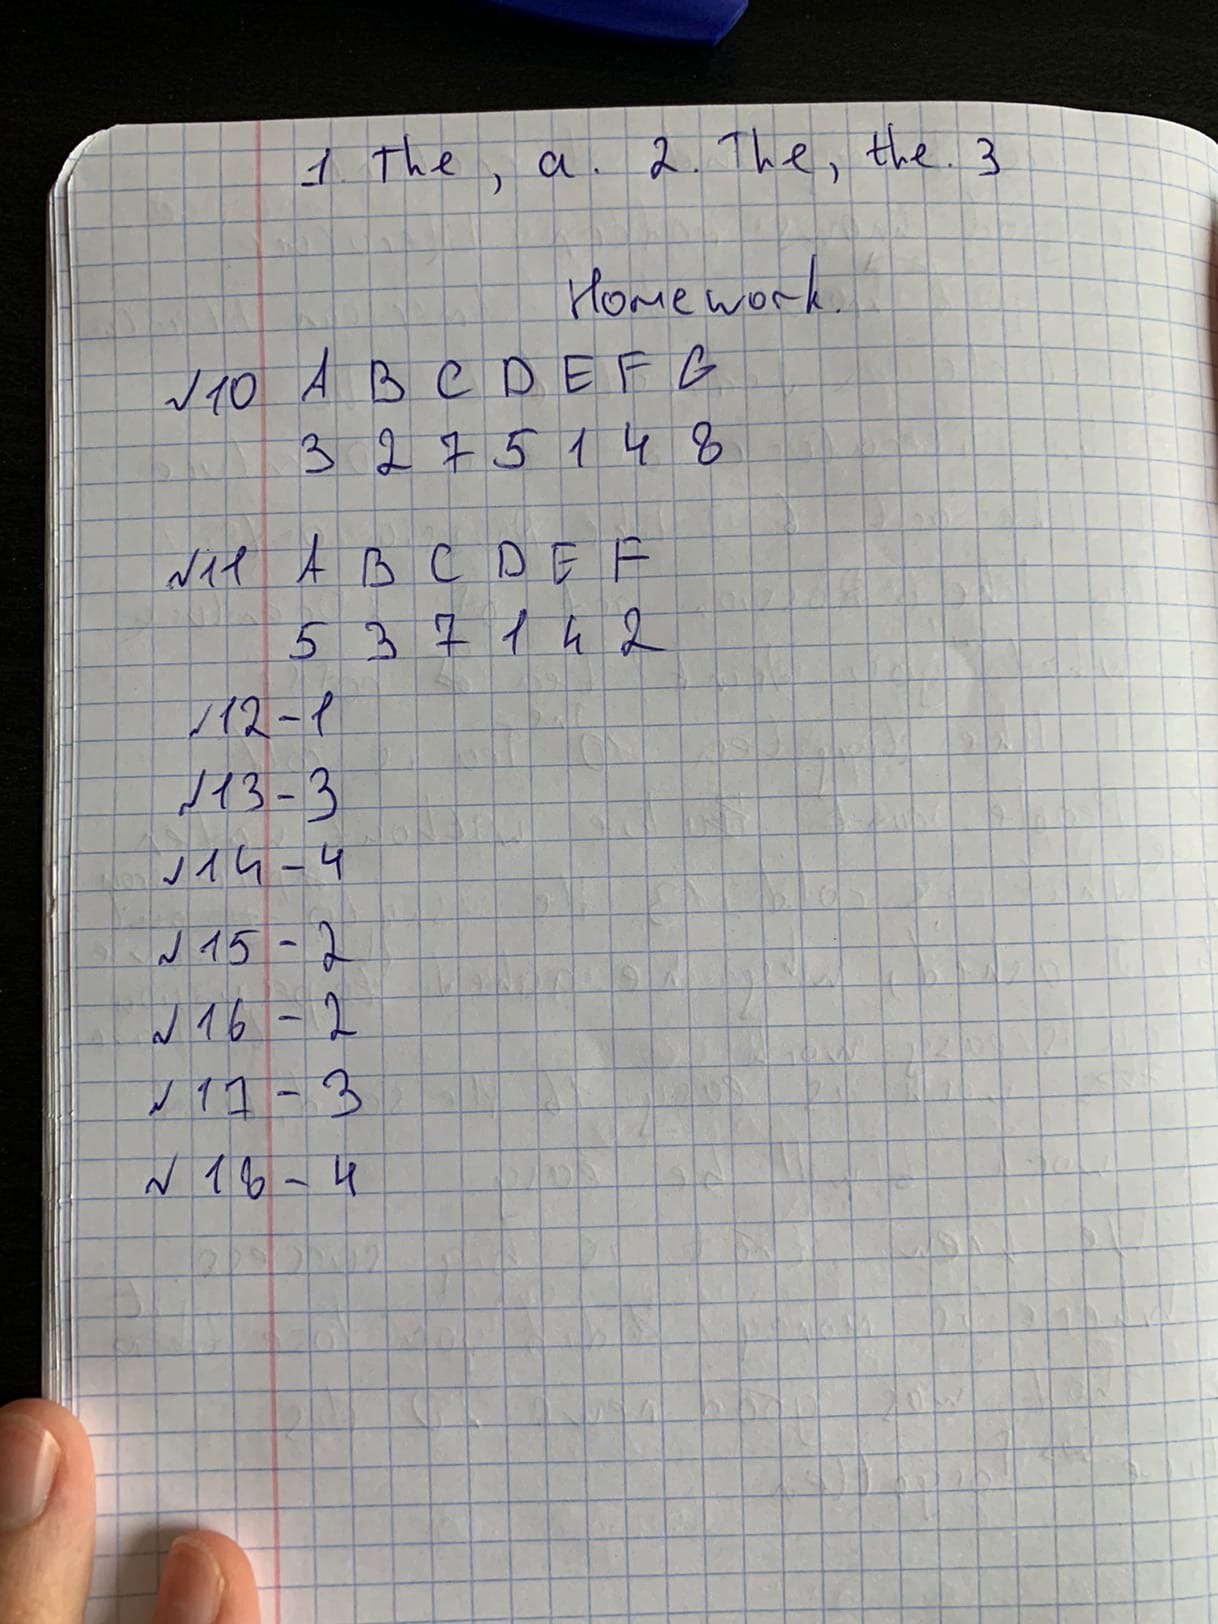 1. The, a. 2. The, the. 3
Homework.
№10 A B C D E F G
3 2 7 5 1 4 8
№11 A B C D E F
5 3 7 1 4 2
№12 - 1
№13 - 3
№14 - 4
№15 - 2
№16 - 2
№17 - 3
№18 - 4